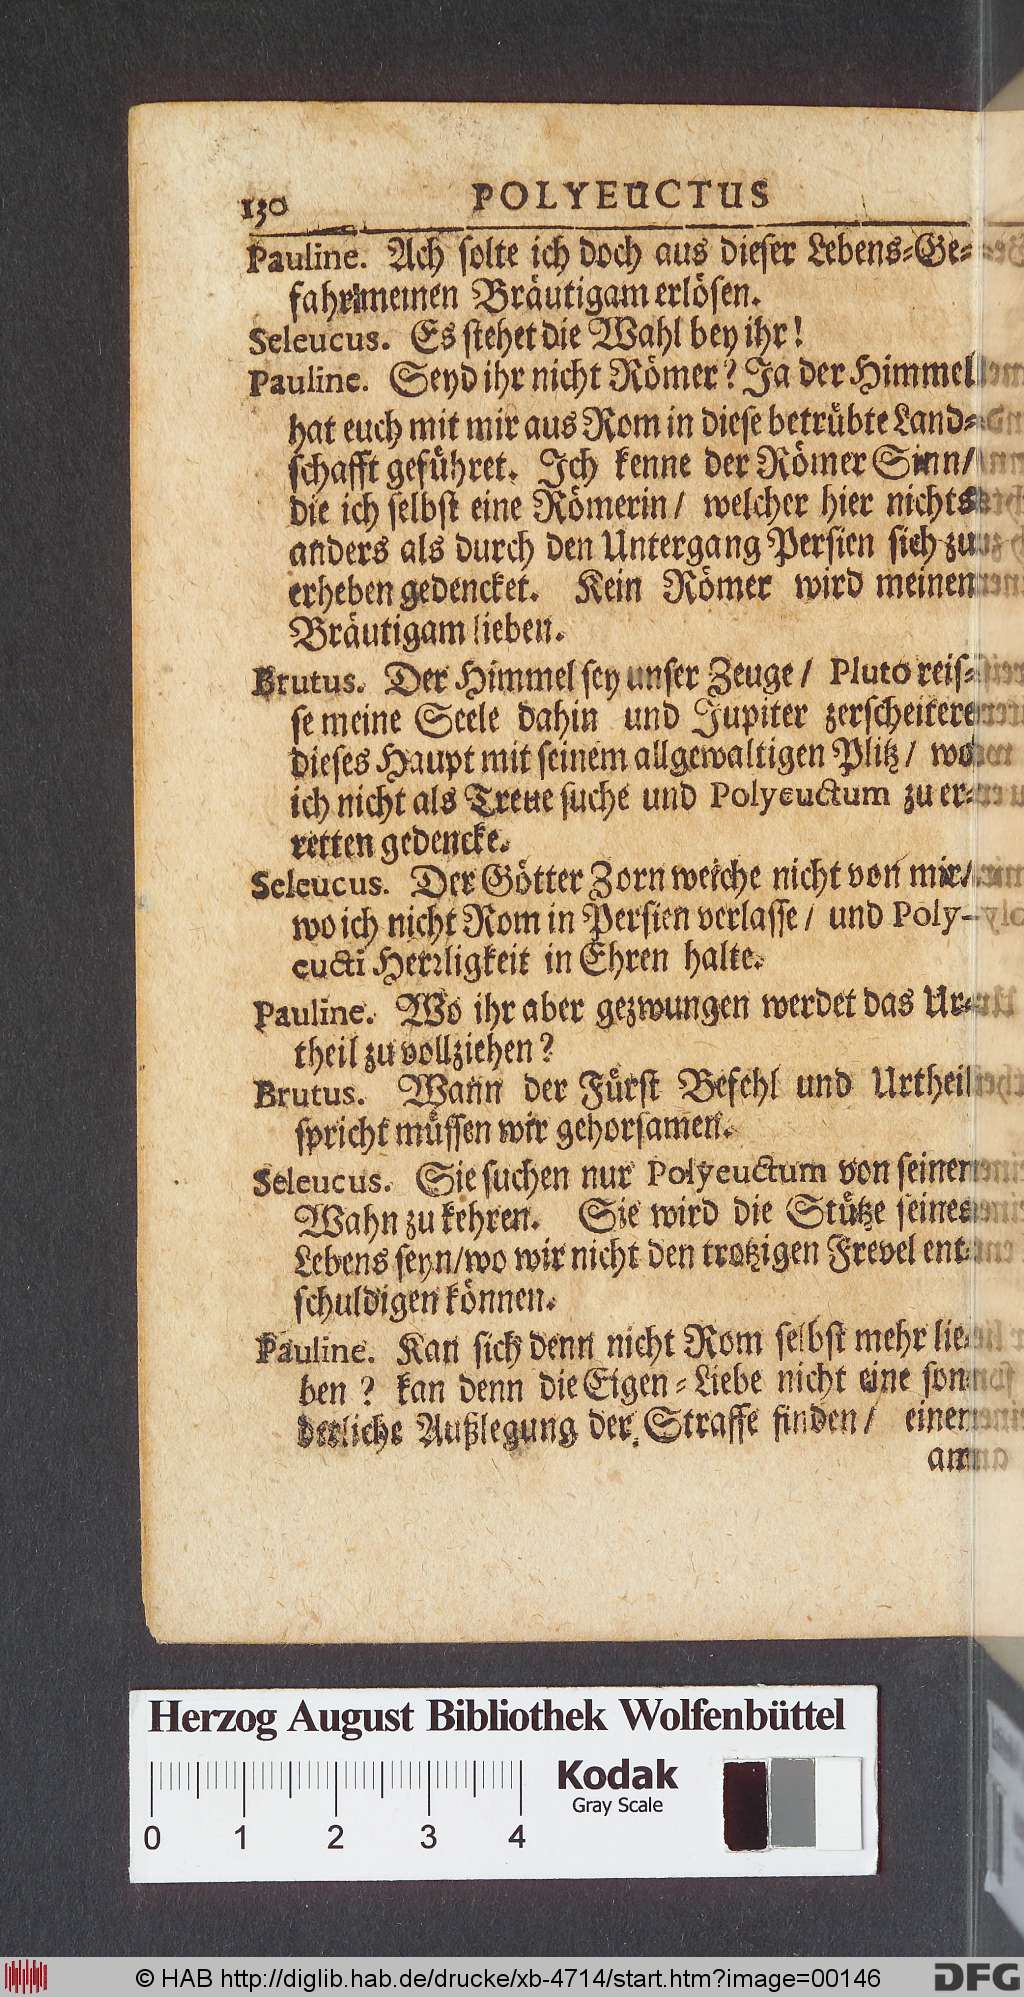 130 POLYEUCTUS
Pauline. Ach solte ich doch aus dieser Lebens-Ge-
fahr meinen Bräutigam erlösen.
Seleucus. Es stehet die Wahl bey ihr!
Pauline. Seyd ihr nicht Römer? Ja der Himmel
hat euch mit mir aus Rom in diese betrübte Land-
schafft geführet. Ich kenne der Römer Sinn/
die ich selbst eine Römerin/ welcher hier nichts
anders als durch den Untergang Persien sich zu
erheben gedencket. Kein Römer wird meinen
Bräutigam lieben.
Brutus. Der Himmel sey unser Zeuge/ Pluto reis-
se meine Seele dahin und Jupiter zerscheitere
dieses Haupt mit seinem allgewaltigen Plitz/ wo
ich nicht als Treue suche und Polyeuctum zu er-
retten gedencke.
Seleucus. Der Götter Zorn weiche nicht von mir/
wo ich nicht Rom in Persien verlasse/ und Poly-
eucti Herrligkeit in Ehren halte.
Pauline. Wo ihr aber gezwungen werdet das Ur-
theil zu vollziehen?
Brutus. Wann der Fürst Befehl und Urtheil
spricht müssen wir gehorsamen.
Seleucus. Sie suchen nur Polyeuctum von seinem
Wahn zu kehren. Sie wird die Stütze seines
Lebens seyn/wo wir nicht den trotzigen Frevel ent-
schuldigen können.
Pauline. Kan sich denn nicht Rom selbst mehr lie-
ben? kan denn die Eigen-Liebe nicht eine son-
derliche Außlegung der Straffe finden/ einen
am
Herzog August Bibliothek Wolfenbüttel
Kodak
Gray Scale
0 1 2 3 4
© HAB http://diglib.hab.de/drucke/xb-4714/start.htm?image=00146
DFG